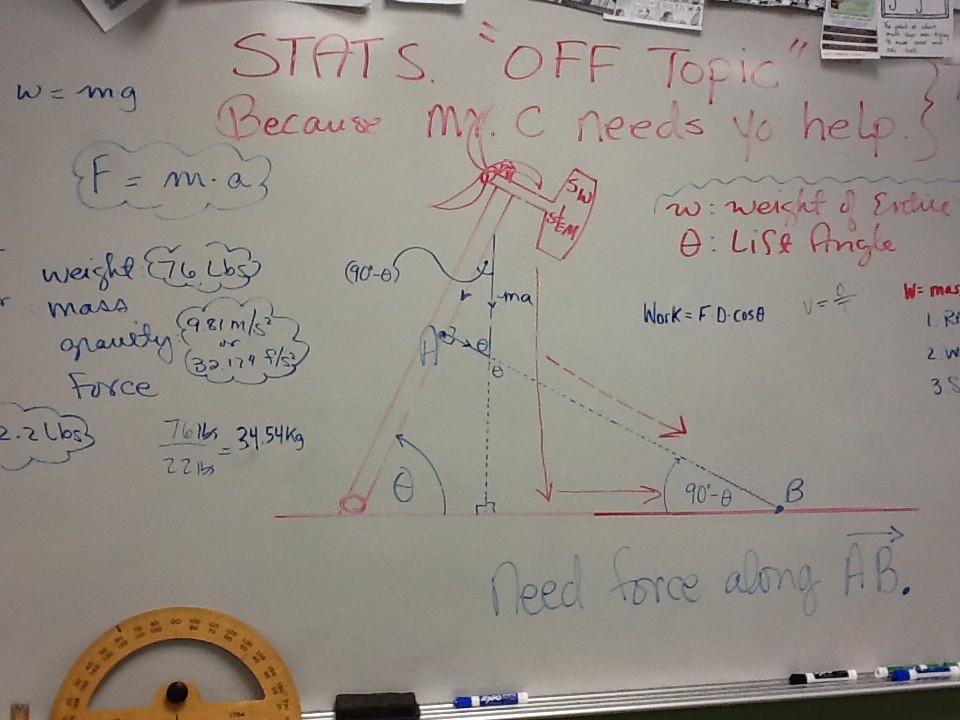 STATS. "OFF Topic"
Because Mr. C needs yo help.
w = mg
F = m·a
weight: 76 Lbs
mass
gravity: 9.81 m/s²
or
32.174 f/s²
Force
2.2 Lbs
76 lbs
22 lbs
= 34.54 Kg
SW
StEM
(90°-θ)
r
ma
A
θ
θ
θ
90°-θ
B
w: weight of Entire
θ: Lift Angle
Work = F D·cosθ
W = mas
1. R
2. W
3. S
Need force along AB.